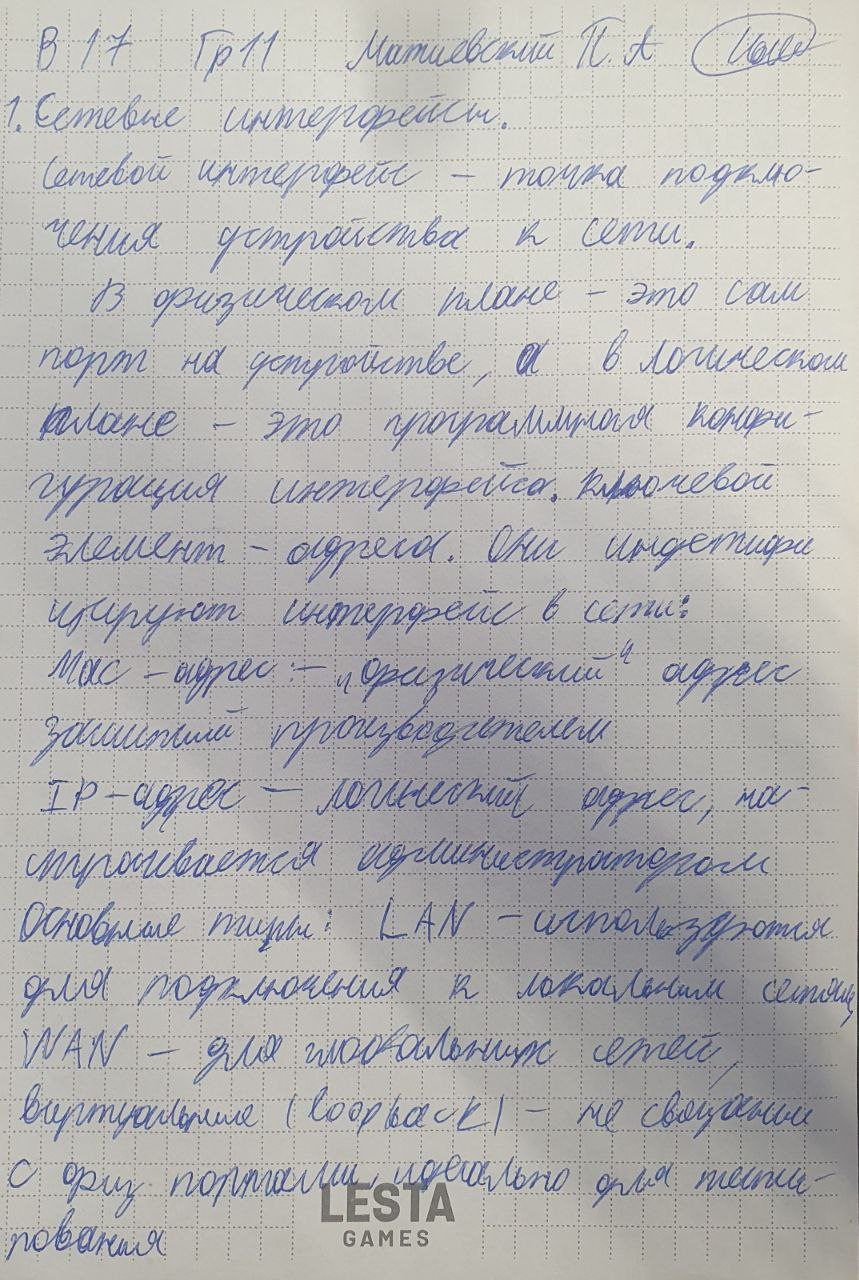 В 17 Гр 11 Матиевский П. А
1. Сетевые интерфейсы.
Сетевой интерфейс – точка подклю-
чения устройства к сети.
В физическом плане – это сам
порт на устройстве, а в логическом
плане – это программная конфи-
гурация интерфейса. Ключевой
элемент – адреса. Они индетифи
цируют интерфейс в сети:
Мас – адрес: – „физический" адрес
зашитый производителем
IP – адрес – логический адрес, на-
страивается администратором
Основные типы: LAN – используются
для подключения к локальным сетям,
WAN – для глобальных сетей,
виртуальные (loopback) – не связанные
с физ портами, идеально для тести-
рования
LESTA
GAMES